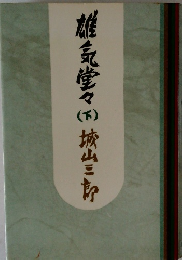 雄気堂々
（下）
城山三郎